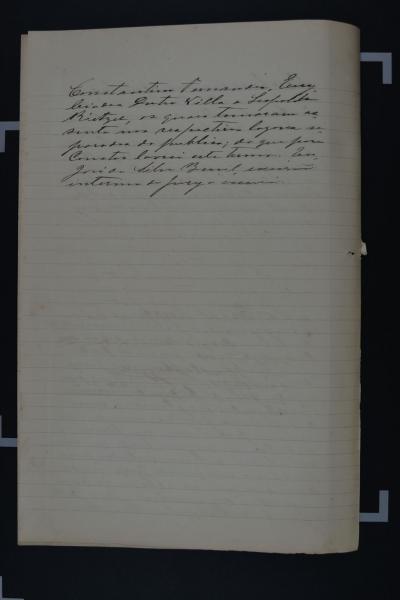 Constantino Fernandes, Eury
biades Dutra Villa e Leopoldo
Rietzel, os quaes tomaram as
sento nos respectivos logares se
parados do publico; do que para
Constar lavrei este termo. Eu,
José da Silva Brazil, escrivão
interino do jury o escrevi.